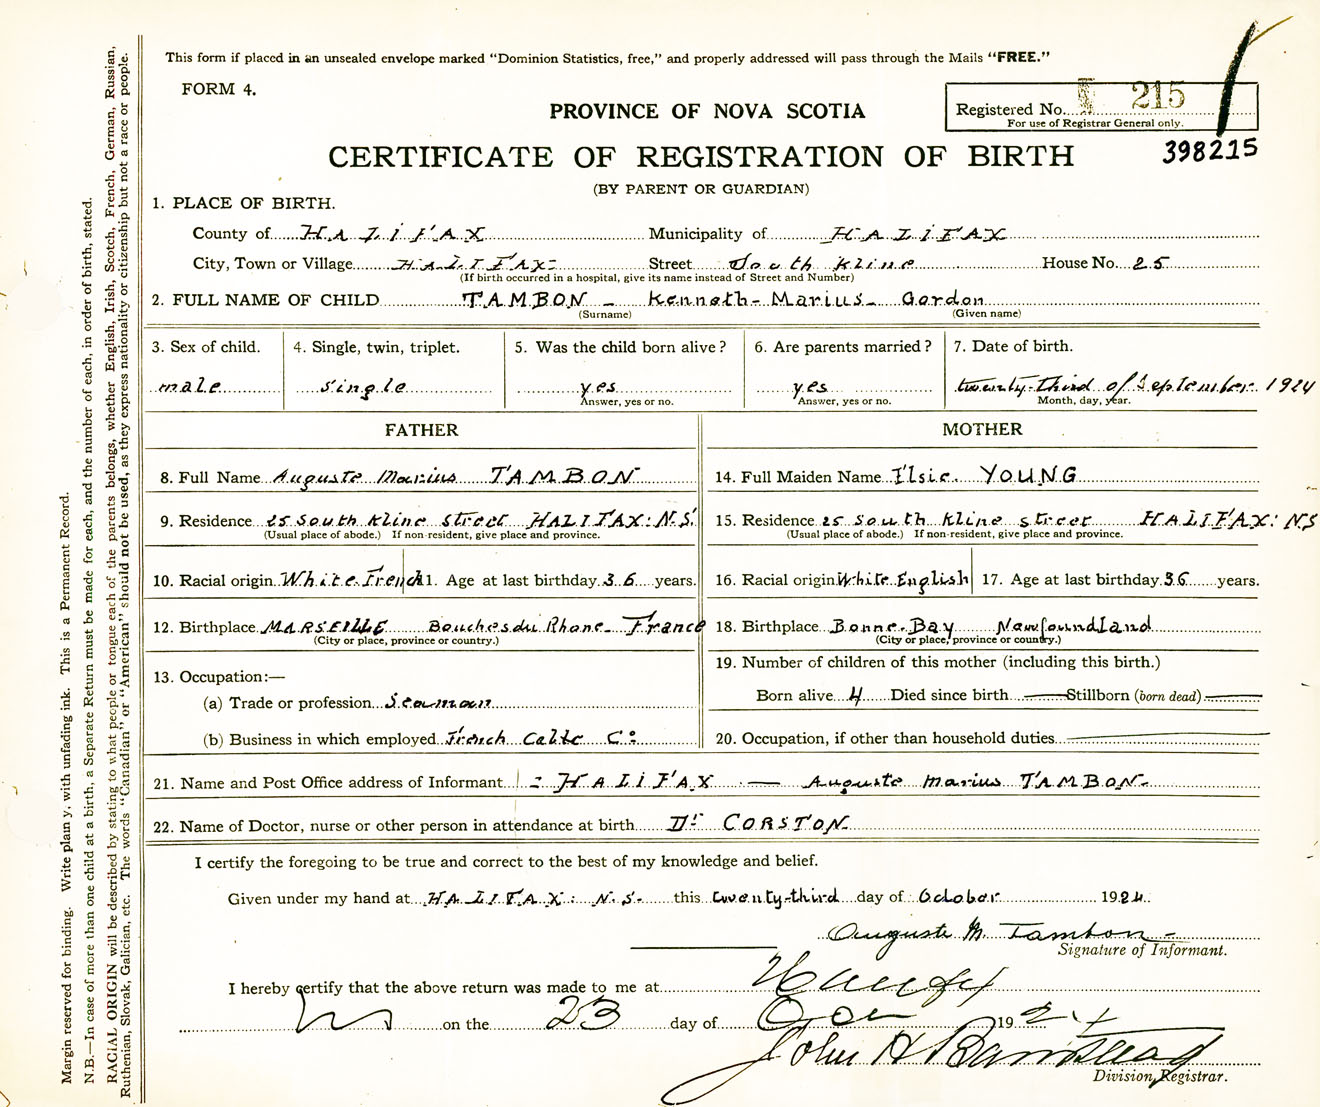 This form if placed in an unsealed envelope marked "Dominion Statistics, free," and properly addressed will pass through the Mails "FREE."
FORM 4.
PROVINCE OF NOVA SCOTIA
Registered No. 215
For use of Registrar General only.
CERTIFICATE OF REGISTRATION OF BIRTH
398215
(BY PARENT OR GUARDIAN)
1. PLACE OF BIRTH.
County of HALIFAX Municipality of HALIFAX
City, Town or Village HALIFAX Street South Kline House No. 25
(If birth occurred in a hospital, give its name instead of Street and Number)
2. FULL NAME OF CHILD TAMBON - Kenneth - Marius - Gordon
(Surname) (Given name)
3. Sex of child. 4. Single, twin, triplet. 5. Was the child born alive? 6. Are parents married? 7. Date of birth.
male single yes yes twenty-third of September 1924
Answer, yes or no. Answer, yes or no. Month, day, year.
FATHER MOTHER
8. Full Name Auguste Marius TAMBON 14. Full Maiden Name Elsie YOUNG
9. Residence 25 South Kline street HALIFAX: N.S. 15. Residence 25 South Kline street HALIFAX: NS
(Usual place of abode.) If non-resident, give place and province. (Usual place of abode.) If non-resident, give place and province.
10. Racial origin White French 11. Age at last birthday 36 years. 16. Racial origin White English 17. Age at last birthday 36 years.
12. Birthplace MARSEILLE Bouches du Rhone - France 18. Birthplace Bonne-Bay Newfoundland
(City or place, province or country.) (City or place, province or country.)
19. Number of children of this mother (including this birth.)
13. Occupation:—
Born alive 4 Died since birth — Stillborn (born dead) —
(a) Trade or profession Seaman
(b) Business in which employed French Cable Co: 20. Occupation, if other than household duties —
21. Name and Post Office address of Informant : HALIFAX — Auguste Marius TAMBON -
22. Name of Doctor, nurse or other person in attendance at birth Dr CORSTON
I certify the foregoing to be true and correct to the best of my knowledge and belief.
Given under my hand at HALIFAX: N.S. this twenty-third day of October 1924.
Auguste M. Tambon -
Signature of Informant.
I hereby certify that the above return was made to me at Halifax
NS on the 23 day of Oct 1924
John H Barnstead
Division Registrar.
Margin reserved for binding. Write plain y, with unfading ink. This is a Permanent Record.
N.B.—In case of more than one child at a birth, a Separate Return must be made for each, and the number of each, in order of birth, stated.
RACIAL ORIGIN will be described by stating to what people or tongue each of the parents belongs, whether English, Irish, Scotch, French, German, Russian,
Ruthenian, Slovak, Galician, etc. The words "Canadian" or "American" should not be used, as they express nationality or citizenship but not a race or people.